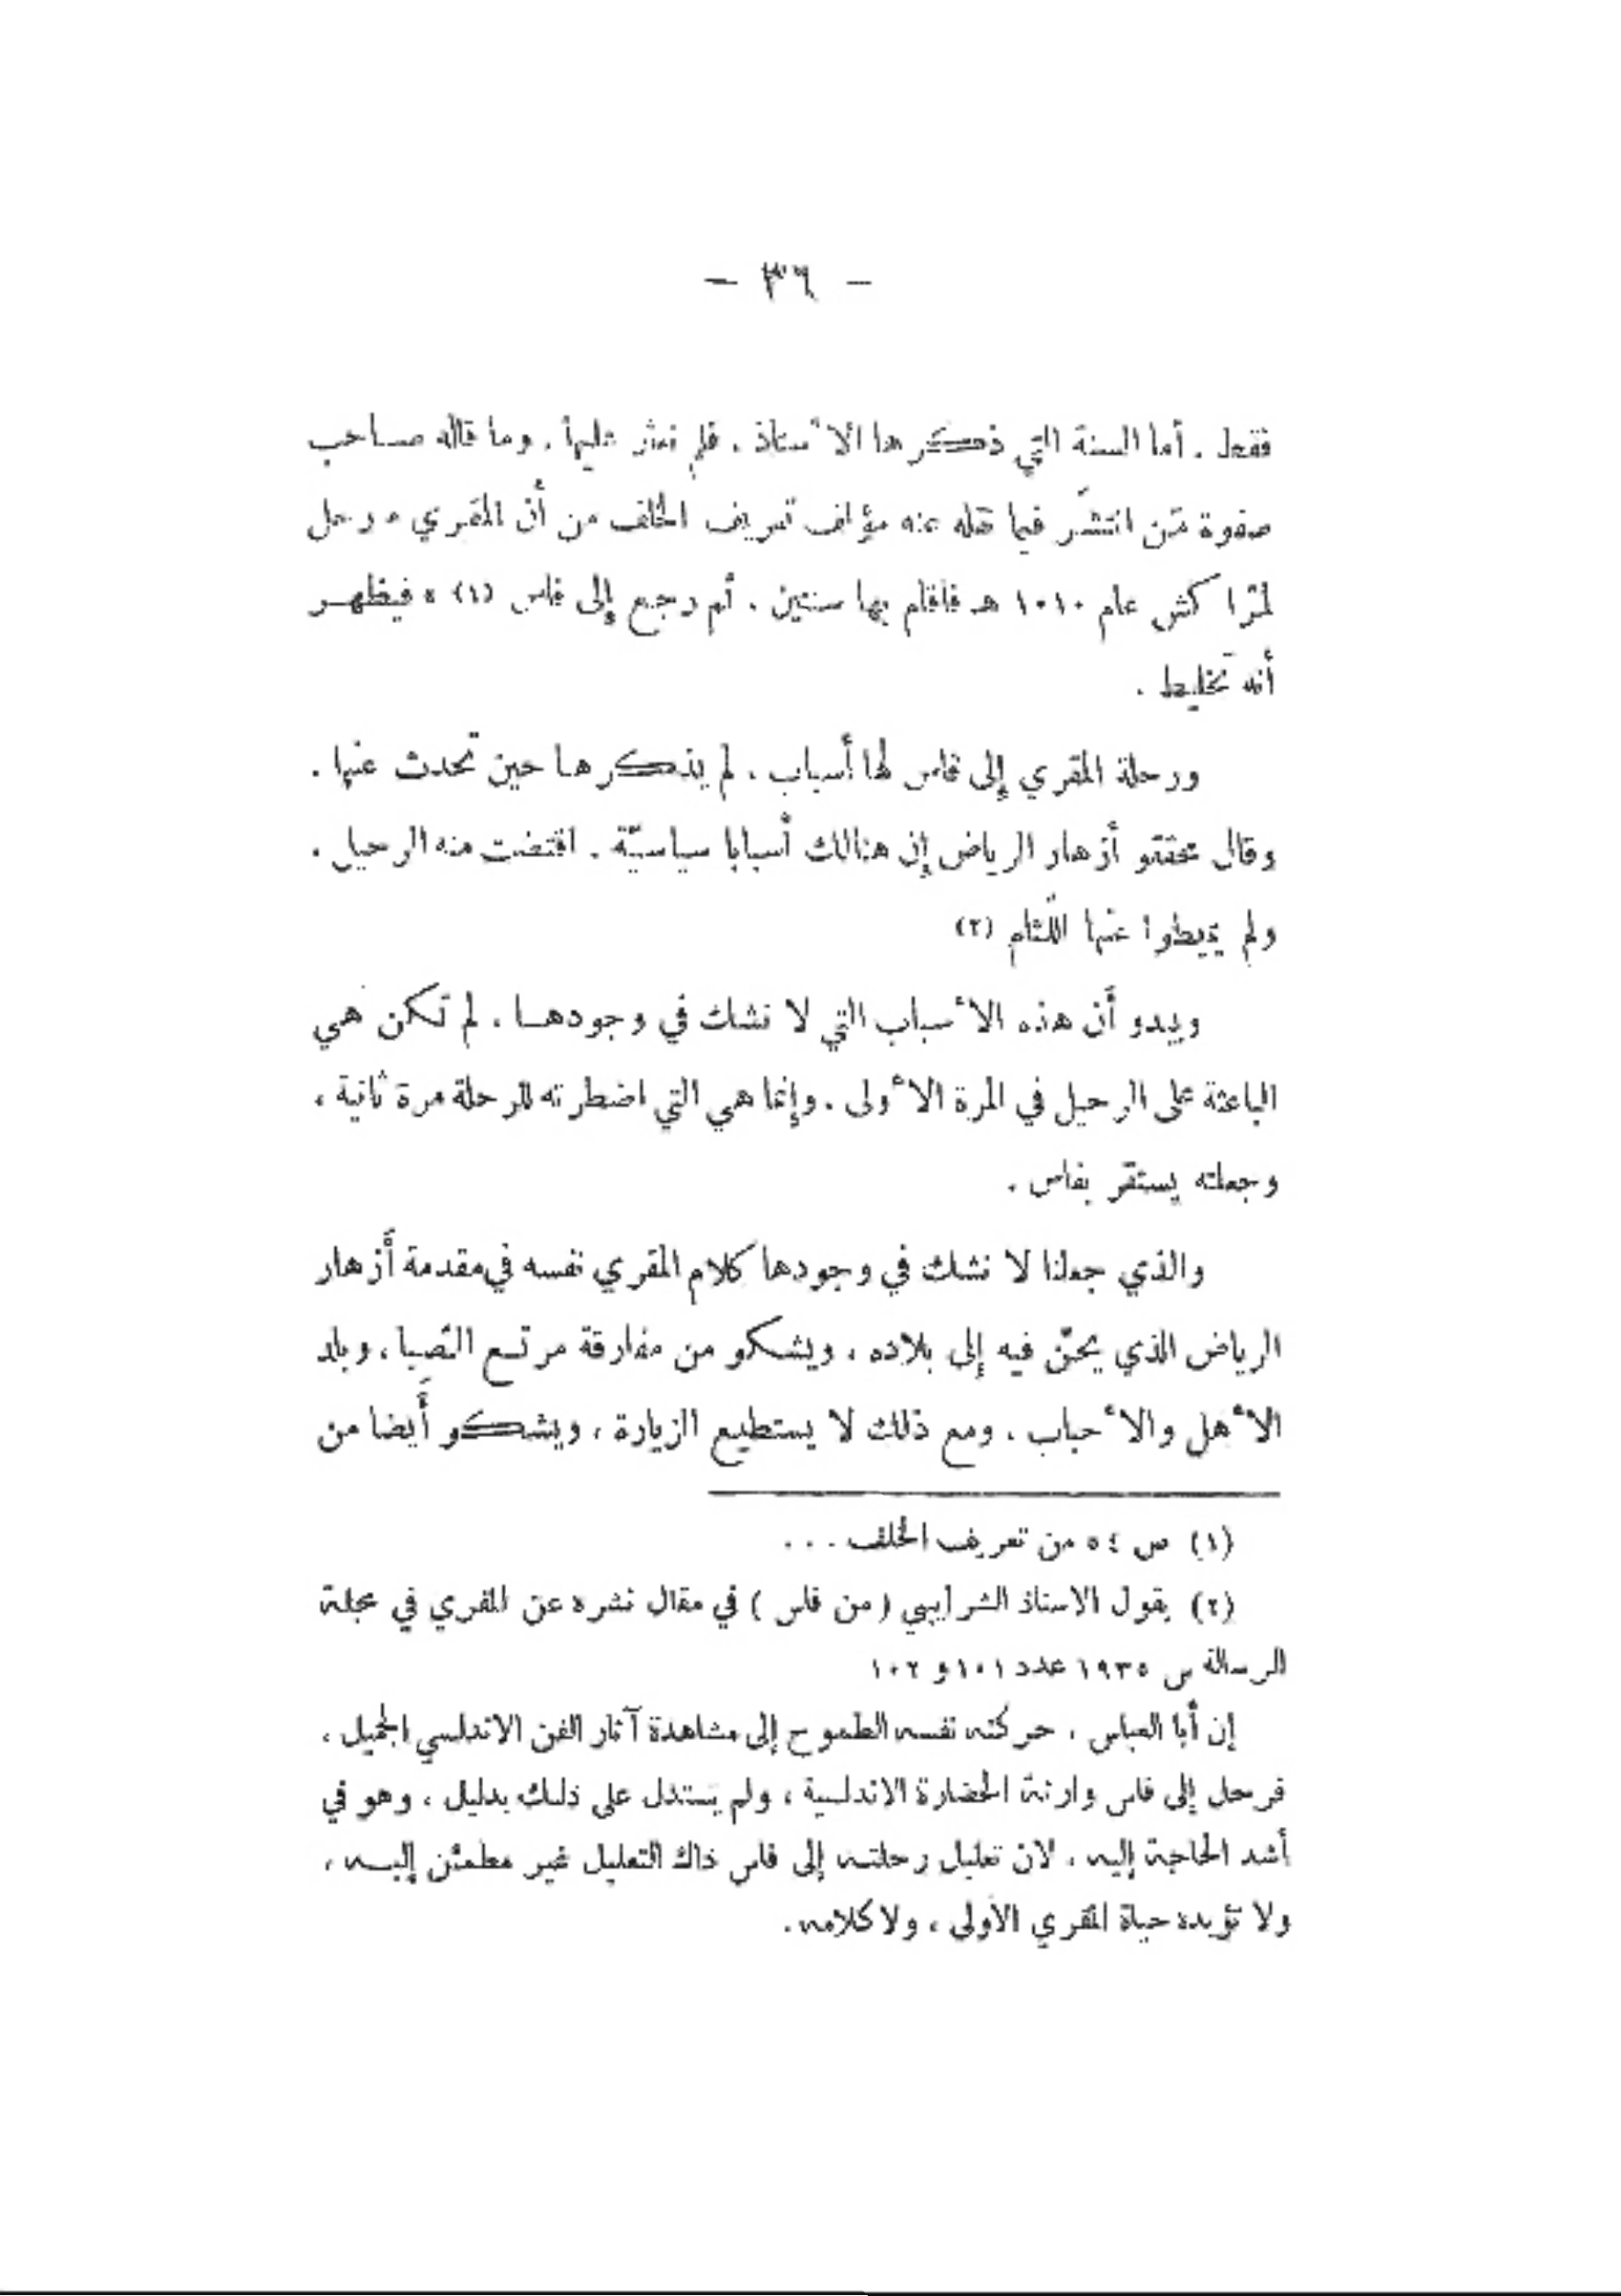 - ٣٦ -
ففعل . أما السنة التي ذكرها الأستاذ ، فلم نعثر عليها ، وما قاله صاحب
صفوة مَن انتشَر فيما نقله عنه مؤلف تعريف الخلف من أن المقري « رحل
لمراكش عام ١٠١٠ هـ فأقام بها سنتين ، ثم رجع إلى فاس (١) » فيظهر
أنه تخليط .
ورحلة المقري إلى فاس لها أسباب ، لم يذكرها حين تحدث عنها .
وقال محققو أزهار الرياض إن هنالك أسبابا سياسيّة . اقتضت منه الرحيل .
ولم يميطوا عنها اللّثام (٢)
ويبدو أن هذه الأسباب التي لا نشك في وجودها ، لم تكن هي
الباعثة على الرحيل في المرة الأولى ، وإنما هي التي اضطرته للرحلة مرة ثانية ،
وجعلته يستقر بفاس .
والذي جعلنا لا نشك في وجودها كلام المقري نفسه في مقدمة أزهار
الرياض الذي يحنّ فيه إلى بلاده ، ويشكو من مفارقة مرتع الصّبا ، وبلد
الأهل والأحباب ، ومع ذلك لا يستطيع الزيارة ، ويشكو أيضا من
(١) ص ٥٤ من تعريف الخلف ...
(٢) يقول الاستاذ الشرايبي ( من فاس ) في مقال نشره عن المقري في مجلة
الرسالة س ١٩٣٥ عدد ١٠١ و ١٠٢
إن أبا العباس ، حركته نفسه الطموح إلى مشاهدة آثار الفن الاندلسي الجميل ،
فرحل إلى فاس وارثة الحضارة الاندلسية ، ولم يستدل على ذلك بدليل ، وهو في
أشد الحاجة إليه ، لان تعليل رحلته إلى فاس ذاك التعليل غير مطمئن إليه ،
ولا تؤيده حياة المقري الأولى ، ولا كلامه .